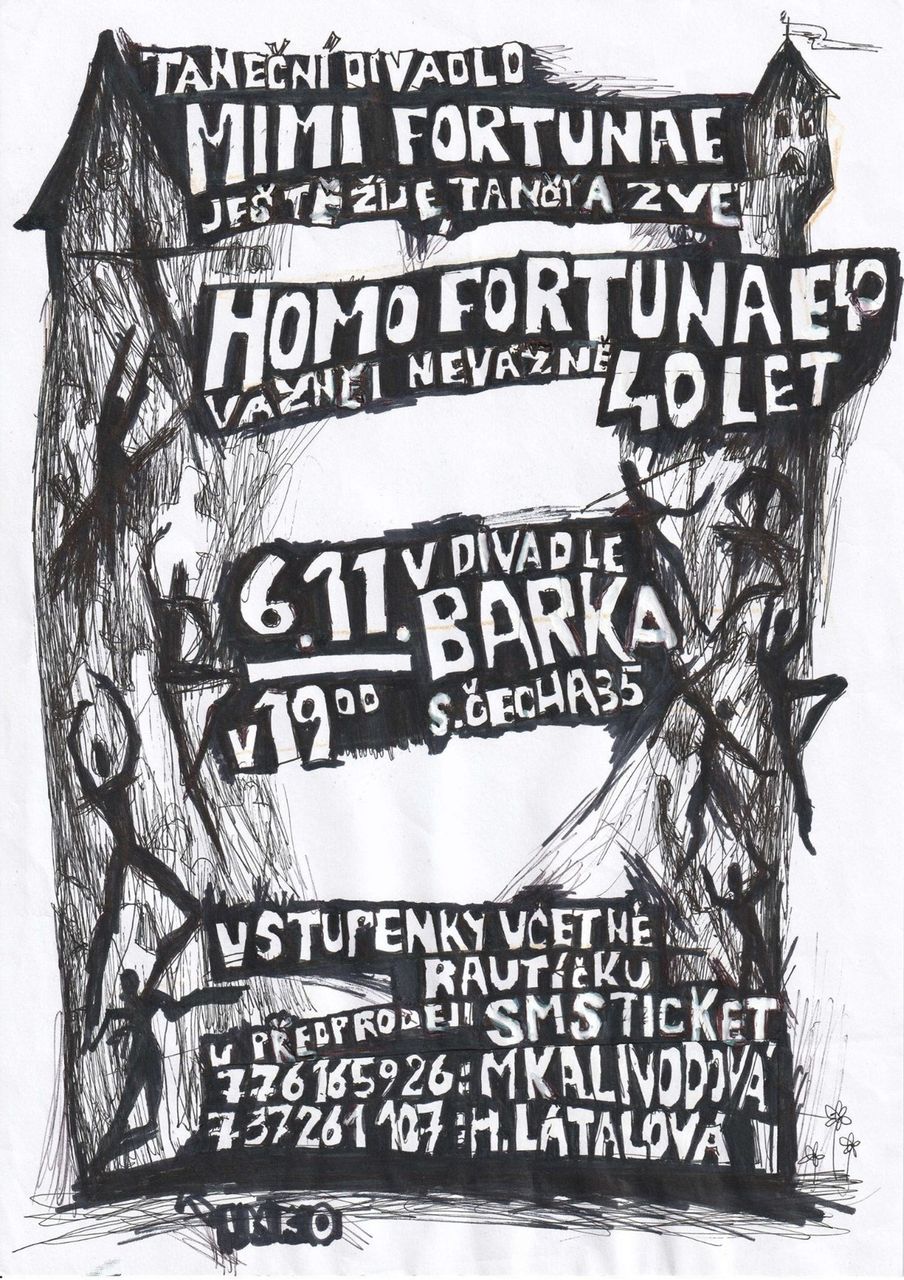 TANEČNÍ DIVADLO
MIMI FORTUNAE
JEŠTĚ ŽIJE, TANČÍ A ZVE
HOMO FORTUNAE 40
VÁŽNĚ I NEVÁŽNĚ 40 LET
6.11. V DIVADLE
BARKA
V 19⁰⁰ S. ČECHA 35
VSTUPENKY VČETNĚ
RAUTÍČKU
V PŘEDPRODEJI SMSTICKET
776165926: M KALIVODOVÁ
737261107: H. LÁTALOVÁ